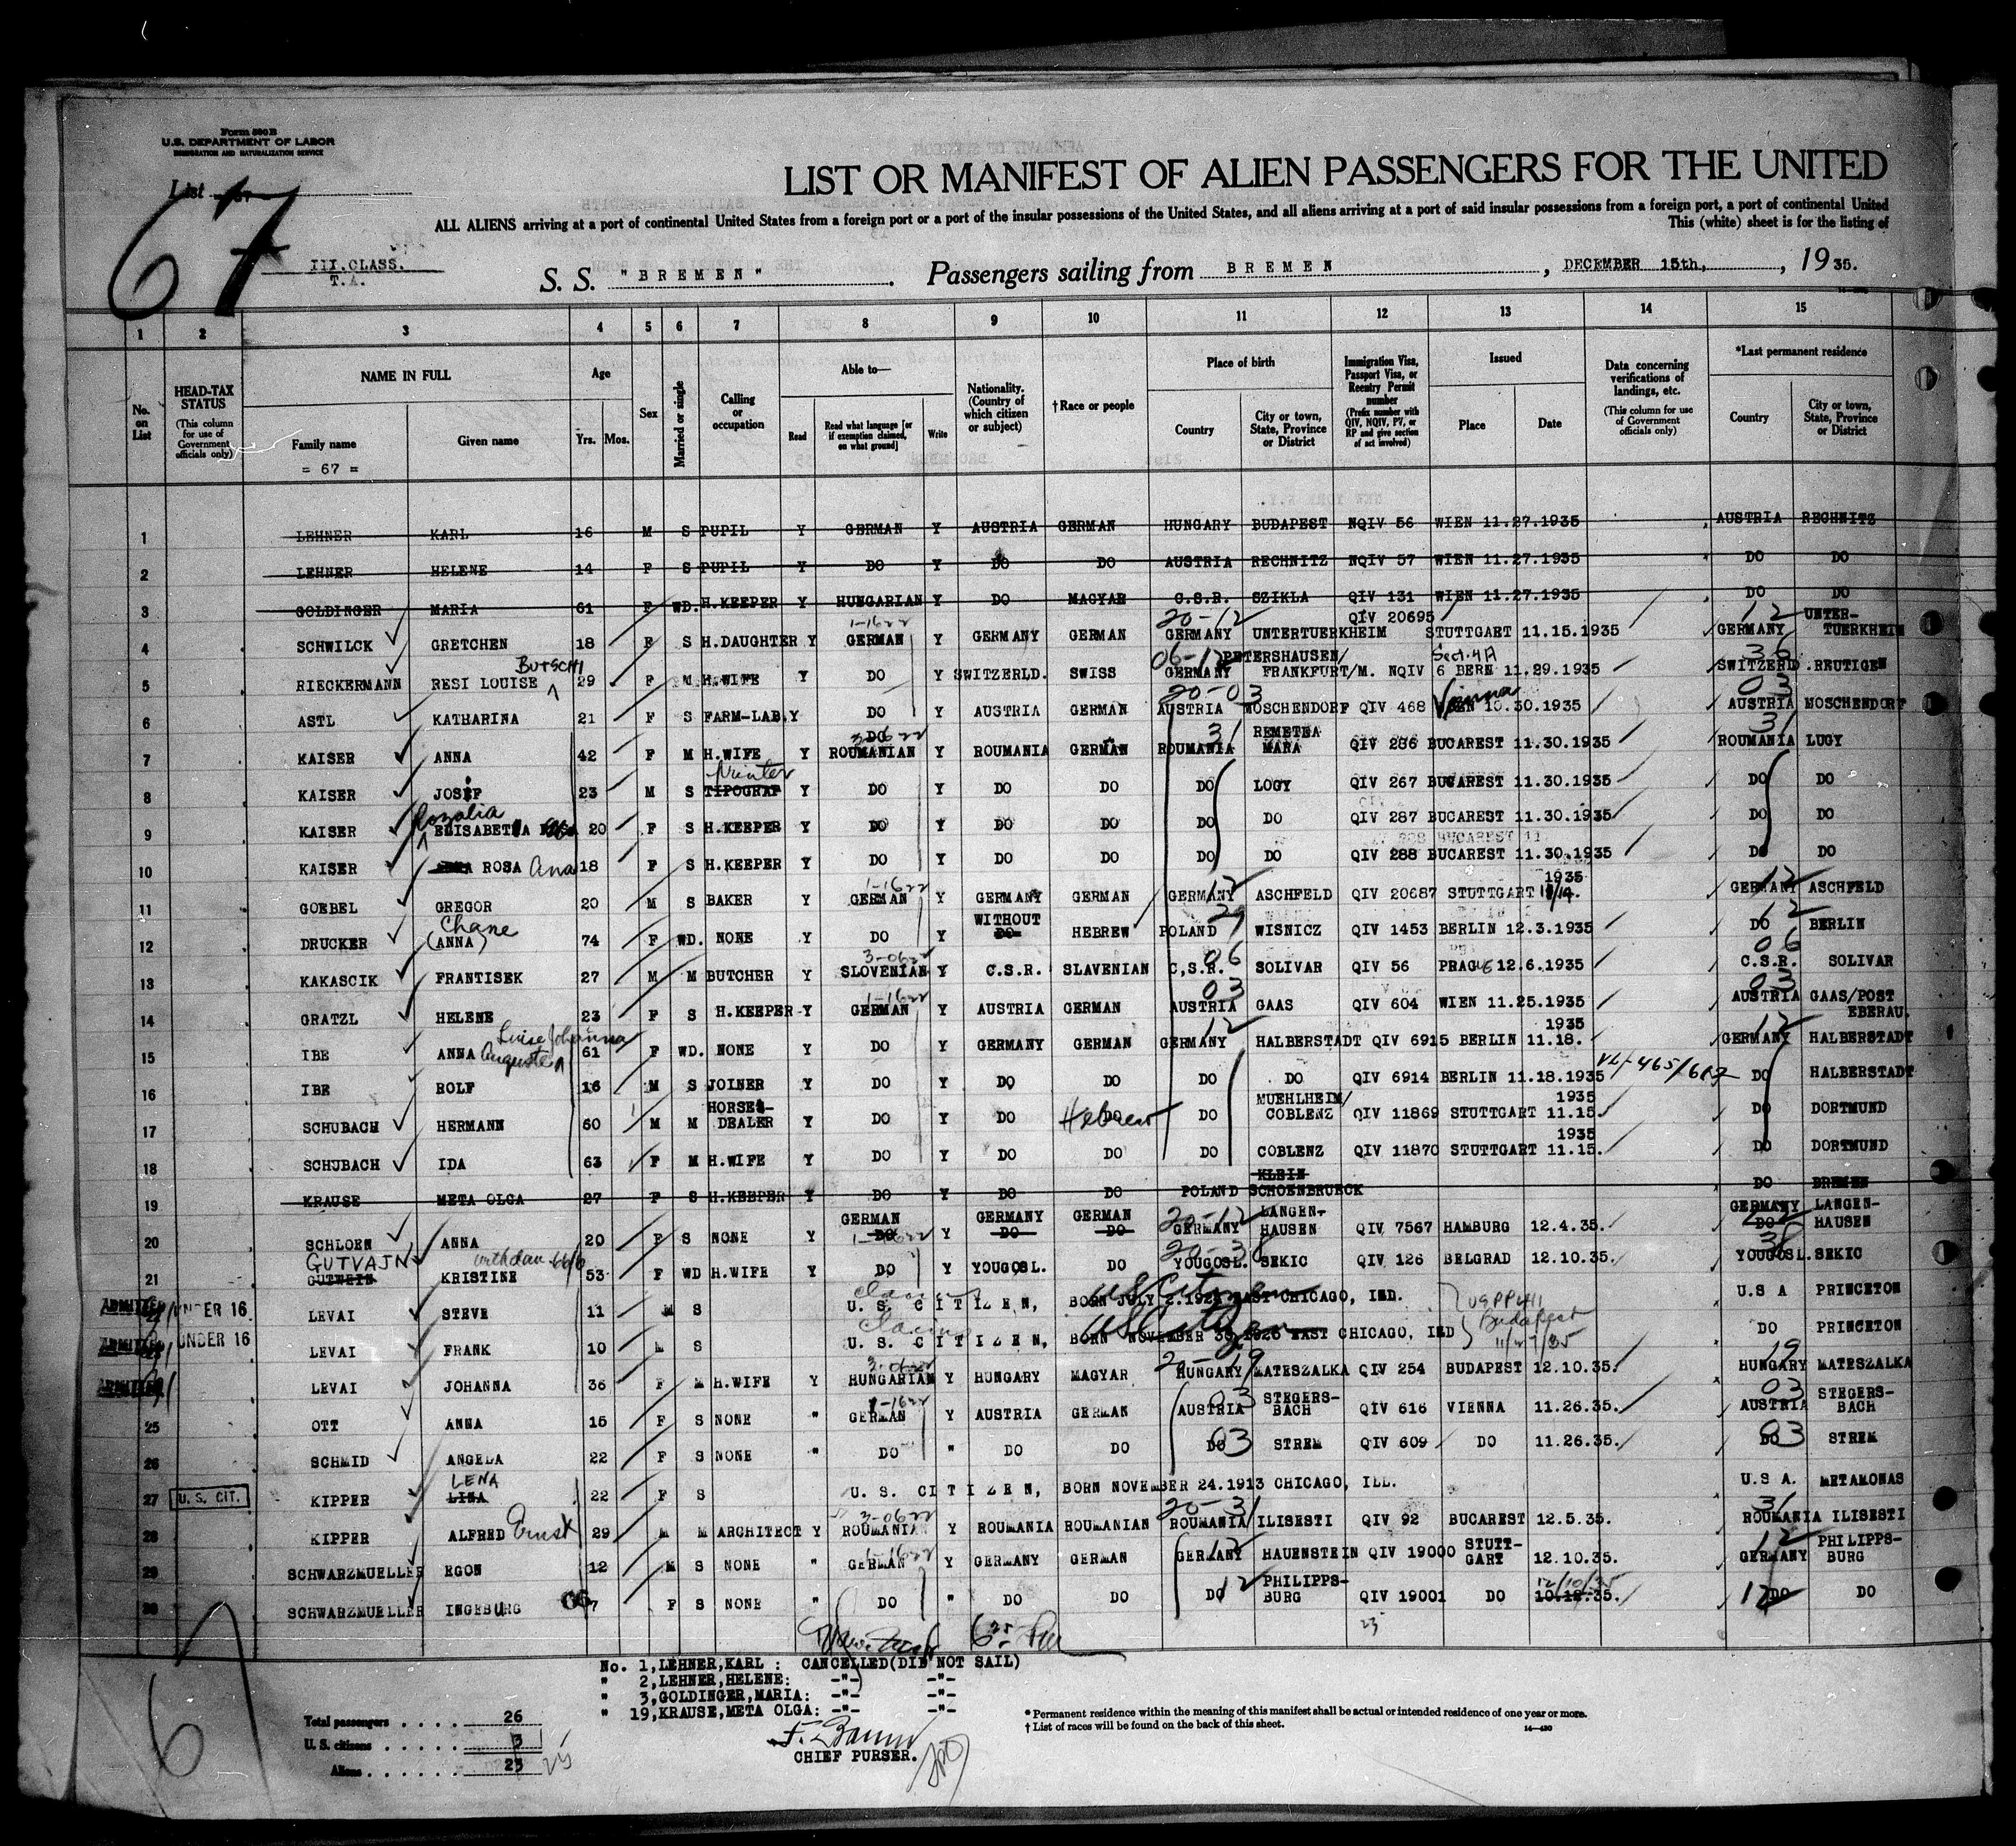 Form 500 B
U.S. DEPARTMENT OF LABOR
IMMIGRATION AND NATURALIZATION SERVICE
List
67
III.CLASS.
T.A.
LIST OR MANIFEST OF ALIEN PASSENGERS FOR THE UNITED
ALL ALIENS arriving at a port of continental United States from a foreign port or a port of the insular possessions of the United States, and all aliens arriving at a port of said insular possessions from a foreign port, a port of continental United
This (white) sheet is for the listing of
S. S. "BREMEN" Passengers sailing from BREMEN, DECEMBER 15th, 1935.
1 2 3 4 5 6 7 8 9 10 11 12 13 14 15
No. on List
HEAD-TAX STATUS (This column for use of Government officials only)
NAME IN FULL Family name Given name
= 67 =
Age Yrs. Mos.
Sex
Married or single
Calling or occupation
Able to— Read Read what language [or if exemption claimed, on what ground] Write
Nationality. (Country of which citizen or subject)
†Race or people
Place of birth Country City or town, State, Province or District
Immigration Visa, Passport Visa, or Reentry Permit number (Prefix number with QIV, NQIV, PV, or RP and give section of act involved)
Issued Place Date
Data concerning verifications of landings, etc. (This column for use of Government officials only)
*Last permanent residence Country City or town, State, Province or District
1 LEHNER KARL 16 M S PUPIL Y GERMAN Y AUSTRIA GERMAN HUNGARY BUDAPEST NQIV 56 WIEN 11.27.1935 AUSTRIA RECHNITZ
2 LEHNER HELENE 14 F S PUPIL Y DO Y DO DO AUSTRIA RECHNITZ NQIV 57 WIEN 11.27.1935 DO DO
3 GOLDINGER MARIA 61 F WD. H.KEEPER Y HUNGARIAN Y DO MAGYAR C.S.R. SZIKLA QIV 131 WIEN 11.27.1935 DO DO
4 SCHWILCK GRETCHEN 18 F S H.DAUGHTER Y 1-1622 GERMAN Y GERMANY GERMAN 20-12 GERMANY UNTERTUERKHEIM QIV 20695 STUTTGART 11.15.1935 12 GERMANY UNTER-TUERKHEIM
5 RIECKERMANN RESI LOUISE BUTSCHI 29 F M H.WIFE Y DO Y SWITZERLD. SWISS 06-12 GERMANY PETERSHAUSEN/ FRANKFURT/M. NQIV 6 Sect.4A BERN 11.29.1935 36 SWITZERLD. REUTIGEN
6 ASTL KATHARINA 21 F S FARM-LAB. Y DO Y AUSTRIA GERMAN 20-03 AUSTRIA MOSCHENDORF QIV 468 Vienna 10.30.1935 03 AUSTRIA MOSCHENDORF
7 KAISER ANNA 42 F M H.WIFE Y DO ROUMANIAN Y ROUMANIA GERMAN 31 ROUMANIA REMETEA MARA QIV 286 BUCAREST 11.30.1935 31 ROUMANIA LUGY
8 KAISER JOSIF 23 M S TIPOGRAF Printer Y DO Y DO DO DO LOGY QIV 267 BUCAREST 11.30.1935 DO DO
9 KAISER Rozalia ELISABETA 20 F S H.KEEPER Y DO Y DO DO DO DO QIV 287 BUCAREST 11.30.1935 DO DO
10 KAISER ROSA Ana 18 F S H.KEEPER Y DO Y DO DO DO DO QIV 288 BUCAREST 11.30.1935 DO DO
11 GOEBEL GREGOR 20 M S BAKER Y 1-1622 GERMAN Y GERMANY GERMAN 12 GERMANY ASCHFELD QIV 20687 STUTTGART 1935 11/14. 12 GERMANY ASCHFELD
12 DRUCKER Chane (ANNA) 74 F WD. NONE Y DO Y WITHOUT DO HEBREW POLAND WISNICZ QIV 1453 BERLIN 12.3.1935 12 DO BERLIN
13 KAKASCIK FRANTISEK 27 M M BUTCHER Y 3-0622 SLOVENIAN Y C.S.R. SLAVENIAN 06 C.S.R. SOLIVAR QIV 56 PRAGUE 12.6.1935 06 C.S.R. SOLIVAR
14 GRATZL HELENE 23 F S H.KEEPER Y 1-1622 GERMAN Y AUSTRIA GERMAN 03 AUSTRIA GAAS QIV 604 WIEN 11.25.1935 03 AUSTRIA GAAS/POST EBERAU.
15 IBE ANNA Auguste Luise Johanna 61 F WD. NONE Y DO Y GERMANY GERMAN 12 GERMANY HALBERSTADT QIV 6915 BERLIN 11.18. 1935 12 GERMANY HALBERSTADT
16 IBE ROLF 16 M S JOINER Y DO Y DO DO DO DO QIV 6914 BERLIN 11.18.1935 DO HALBERSTADT
17 SCHUBACH HERMANN 60 M M HORSE-DEALER Y DO Y DO DO Hebrew DO MUEHLHEIM/ COBLENZ QIV 11869 STUTTGART 1935 11.15. DO DORTMUND
18 SCHUBACH IDA 63 F M H.WIFE Y DO Y DO DO DO COBLENZ QIV 11870 STUTTGART 1935 11.15. DO DORTMUND
19 KRAUSE META OLGA 27 F S H.KEEPER Y DO Y DO DO POLAND KLEIN SCHOENBRUECK DO BREMEN
20 SCHLOEN ANNA 20 F S NONE Y GERMAN DO Y GERMANY DO GERMAN DO 20-12 GERMANY LANGEN-HAUSEN QIV 7567 HAMBURG 12.4.35. GERMANY DO LANGEN-HAUSEN
21 GUTVAJN GUTWEIN KRISTINE 53 F WD H.WIFE Y DO Y YOUGOSL. DO 20-38 YOUGOSL. SEKIC QIV 126 BELGRAD 12.10.35. 38 YOUGOSL. SEKIC
ADMITTED UNDER 16 LEVAI STEVE 11 M S claims U. S. CITIZEN, BORN JULY 2.192 EAST CHICAGO, IND. US Citizen U S A PRINCETON
ADMITTED UNDER 16 LEVAI FRANK 10 M S claims U. S. CITIZEN, BORN NOVEMBER 30.1925 EAST CHICAGO, IND US Citizen Budapest 11/27/35 DO PRINCETON
ADMITTED LEVAI JOHANNA 36 F M H.WIFE Y 3-0622 HUNGARIAN Y HUNGARY MAGYAR 20-19 HUNGARY MATESZALKA QIV 254 BUDAPEST 12.10.35. 19 HUNGARY MATESZALKA
25 OTT ANNA 15 F S NONE " 1-1622 GERMAN Y AUSTRIA GERMAN 03 AUSTRIA STEGERS-BACH QIV 616 VIENNA 11.26.35. 03 AUSTRIA STEGERS-BACH
26 SCHMID ANGELA 22 F S NONE " DO " DO DO DO 03 STREM QIV 609 DO 11.26.35. DO 03 STREM
27 U.S. CIT. KIPPER LENA LINA 22 F S U. S. CITIZEN, BORN NOVEMBER 24.1913 CHICAGO, ILL. U.S A. METAMONAS
28 KIPPER ALFRED Ernst 29 M M ARCHITECT Y 3-0622 ROUMANIAN Y ROUMANIA ROUMANIAN 20-31 ROUMANIA ILISESTI QIV 92 BUCAREST 12.5.35. 31 ROUMANIA ILISESTI
29 SCHWARZMUELLER EGON 12 M S NONE " 1-1622 GERMAN Y GERMANY GERMAN 12 GERMANY HAUENSTEIN QIV 19000 STUTT-GART 12.10.35. 12 GERMANY PHILIPPS-BURG
30 SCHWARZMUELLER INGEBURG 7 F S NONE " DO " DO DO DO 12 PHILIPPS-BURG QIV 19001 DO 12/10/35 10.12.35. 12 DO DO
No. 1,LEHNER,KARL : CANCELLED(DID NOT SAIL)
" 2,LEHNER,HELENE: -"- -"-
" 3,GOLDINGER,MARIA: -"- -"-
" 19,KRAUSE,META OLGA: -"- -"-
CHIEF PURSER.
Total passengers . . . . 26
U. S. citizens . . . . 3
Aliens . . . . . . 23
* Permanent residence within the meaning of this manifest shall be actual or intended residence of one year or more.
† List of races will be found on the back of this sheet.
14—430
67